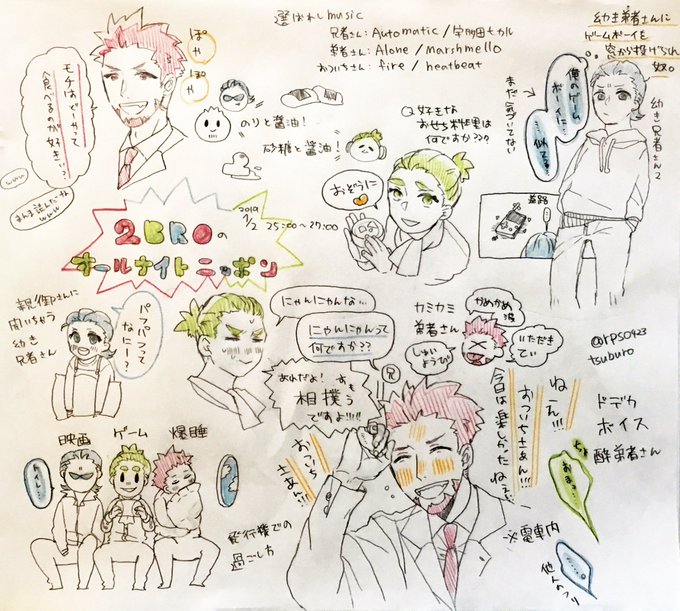 選ばれしmusic
兄者さん: Automatic / 宇多田ヒカル
弟者さん: Alone / Marshmello
おついちさん: fire / heatbeat
ぽや
ぽや
モチはどーやって
食べるのが好き…?
www
まんま読んだったwww
のりと醤油!
砂糖と醤油!
Q.好きな
おせち料理は
何ですか??
おぞうに
幼き弟者さんに
ゲームボーイを
窓から投げられ
奴。
俺のゲーム
ボーイに…
…似てる…
まだ気づいてない
幼き兄者さん
道路
2BROの
オールナイトニッポン
2019
1/2 25:00~27:00
親御さんに
聞いちゃう
幼き
兄者さん
パフパフって
なにー?
にゃんにゃんな…
にゃんにゃんって
何ですか??
カミカミ
弟者さん
かめかめ
しゅいようび
いただき
てぃ
@rps0423
tsuburo
あれだよ!すもう
相撲
ですよ!!!!
兄
ねぇ!!!
おついちさぁん!!!
今日は楽しかったねぇ
おついち
さぁん!!
ドデカ
ボイス
酔弟者さん
※電車内
他人のフリ
映画
ゲーム
爆睡
トイレ…
飛行機での
過ごし方